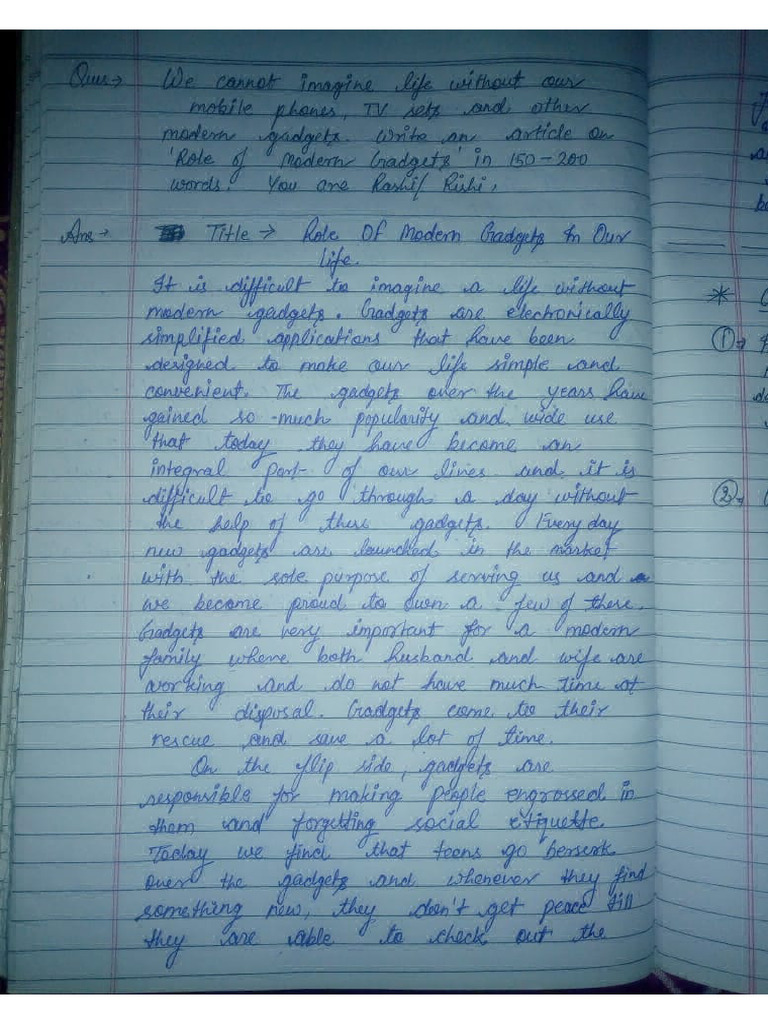 Ques → We cannot imagine life without our
mobile phones, TV sets and other
modern gadgets. Write an article on
'Role of Modern Gadgets' in 150-200
words. You are Rashi/ Rishi.
Ans → Title → Role Of Modern Gadgets In Our
life.
It is difficult to imagine a life without
modern gadgets. Gadgets are electronically
simplified applications that have been
designed to make our life simple and
convenient. The gadgets over the years have
gained so much popularity and wide use
that today they have become an
integral part of our lives and it is
difficult to go through a day without
the help of these gadgets. Every day
new gadgets are launched in the market
with the sole purpose of serving us and
we become proud to own a few of these.
Gadgets are very important for a modern
family where both husband and wife are
working and do not have much time at
their disposal. Gadgets come to their
rescue and save a lot of time.
On the flip side, gadgets are
responsible for making people engrossed in
them and forgetting social etiquette.
Today we find that teens go berserk
over the gadgets and whenever they find
something new, they don't get peace till
they are able to check out the
* 
1 →
2 →